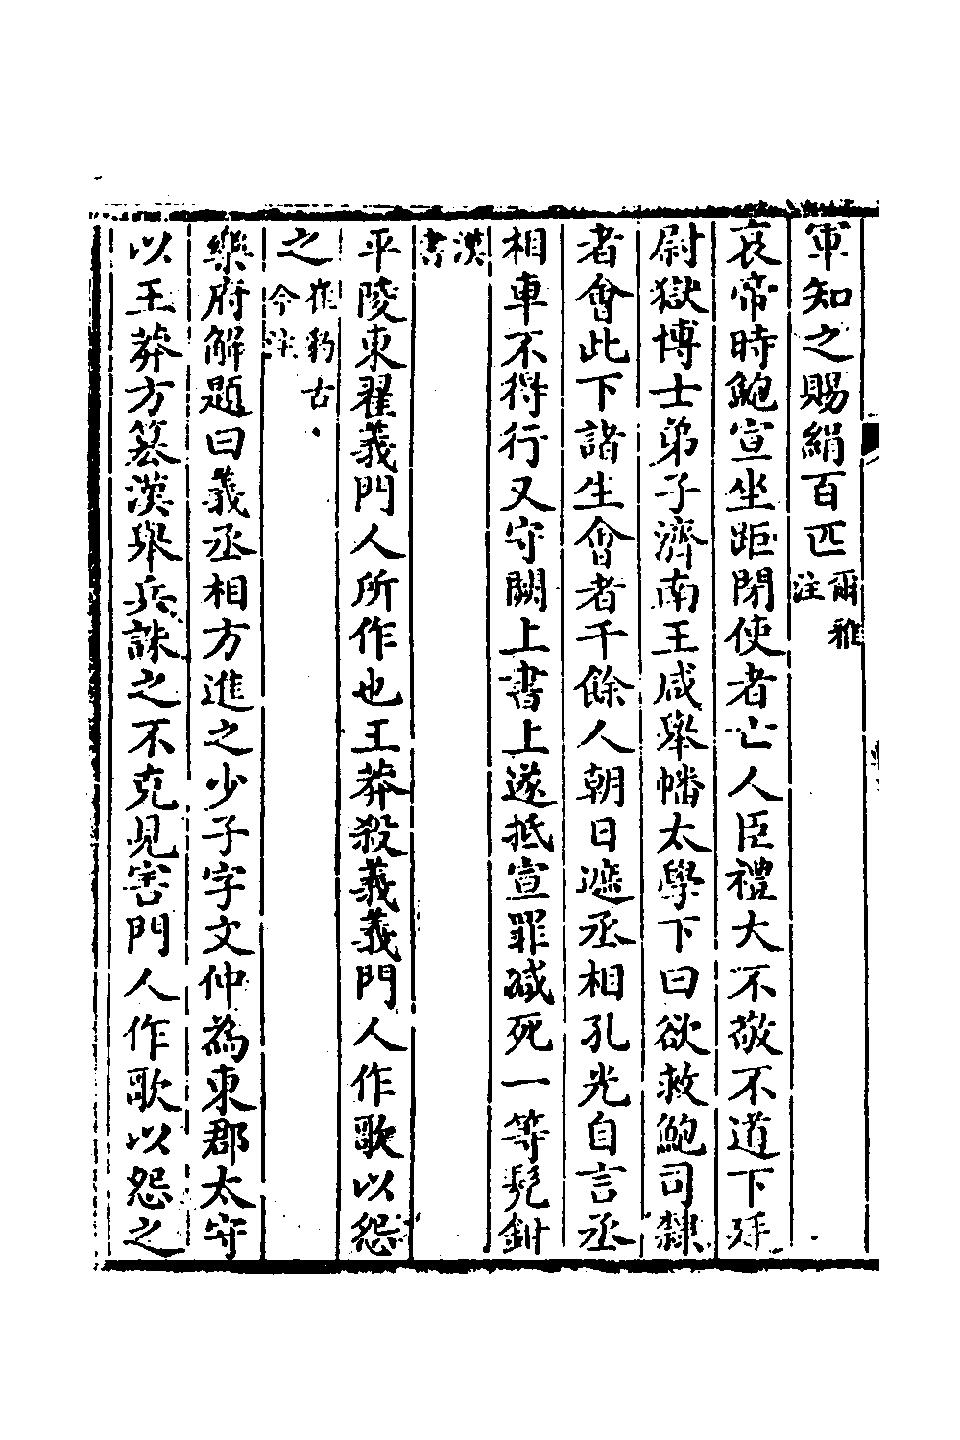 軍知之賜絹百匹爾雅注
哀帝時鮑宣坐距閉使者亡人臣禮大不敬不道下廷
尉獄博士弟子濟南王咸舉幡太學下曰欲救鮑司隸
者會此下諸生會者千餘人朝日遮丞相孔光自言丞
相車不得行又守闕上書上遂抵宣罪減死一等髡鉗
漢書
平陵東翟義門人所作也王莽殺義義門人作歌以怨
之崔豹古今注
樂府解題曰義丞相方進之少子字文仲為東郡太守
以王莽方篡漢舉兵誅之不克見害門人作歌以怨之